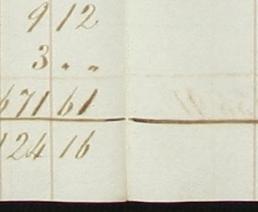 9 12
3 " "
671 61
124 16